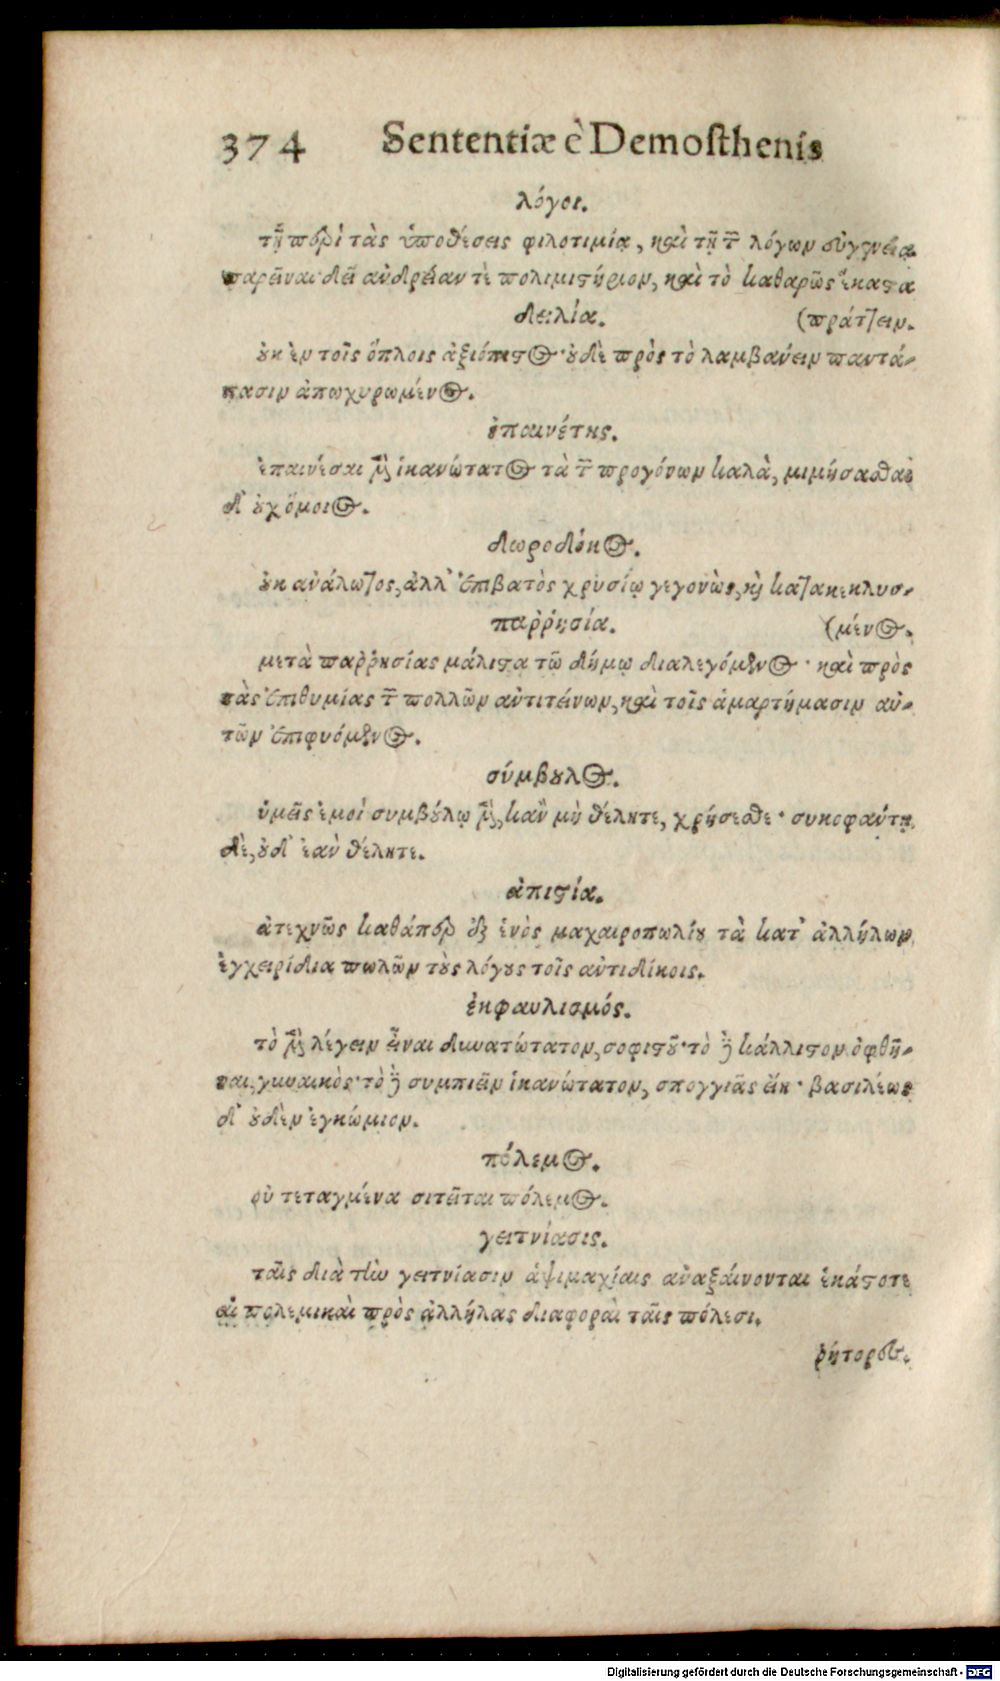 374 Sententiæ è Demosthenis
λόγοι.
τῇ περὶ τὰς ὑποθέσεις φιλοτιμία, καὶ τῇ τῶν λόγων εὐγενείᾳ
παρεῖναι δεῖ ἀνδρείαν τὲ πολεμιστήριον, καὶ τὸ καθαρῶς ἕκαστα
δειλία. (πράττειν.
οὐκ ἐν τοῖς ὅπλοις ἀξιόπιστος· οὐδὲ πρὸς τὸ λαμβάνειν παντά-
πασιν ἀπωχυρωμένος.
ἐπαινέτης.
ἐπαινέσαι μὲν ἱκανώτατος τὰ τῶν προγόνων καλὰ, μιμήσασθαι
δ' οὐχ ὅμοιος.
δωροδόκος.
οὐκ ἀνάλωτος, ἀλλ' ἐπιβατὸς χρυσίῳ γεγονὼς, καὶ κατακεκλυσ-
παῤῥησία. (μένος.
μετὰ παῤῥησίας μάλιστα τῷ δήμῳ διαλεγόμενος· καὶ πρὸς
τὰς ἐπιθυμίας τῶν πολλῶν ἀντιτείνων, καὶ τοῖς ἁμαρτήμασιν αὐ-
τῶν ἐπιφυόμενος.
σύμβουλος.
ὑμεῖς ἐμοὶ συμβούλῳ μὲν, κἂν μὴ θέλητε, χρήσεσθε· συκοφαντῃ
δὲ, οὐδ' ἐὰν θέλητε.
ἀπιστία.
ἀτεχνῶς καθάπερ ἐξ ἑνὸς μαχαιροπωλίου τὰ κατ' ἀλλήλων
ἐγχειρίδια πωλῶν τοὺς λόγους τοῖς ἀντιδίκοις.
ἐκφαυλισμός.
τὸ μὲν λέγειν εἶναι δυνατώτατον, σοφιστοῦ· τὸ δὲ κάλλιστον ὀφθῆ-
ναι, γυναικὸς· τὸ δὲ συμπιεῖν ἱκανώτατον, σπογγιᾶς εἶναι· βασιλέως
δ' οὐδὲν ἐγκώμιον.
πόλεμος.
οὐ τεταγμένα σιτεῖται πόλεμος.
γειτνίασις.
ταῖς διὰ τὴν γειτνίασιν ἁψιμαχίαις ἀναξαίνονται ἑκάστοτε
αἱ πολεμικαὶ πρὸς ἀλλήλας διαφοραὶ ταῖς πόλεσι.
ῥήτορες.
Digitalisierung gefördert durch die Deutsche Forschungsgemeinschaft - DFG